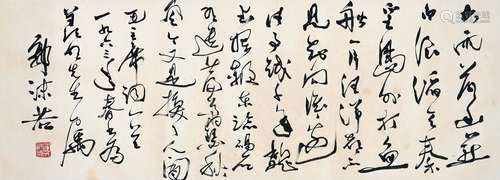 大雨落幽燕
白浪滔天秦
皇岛外打鱼
船一片汪洋都不
见知向谁边
往事越千年魏
武挥鞭东临碣石
有遗篇萧瑟秋
风今又是换了人间
毛主席词一首
一九六三年春书为
先生
郭沫若